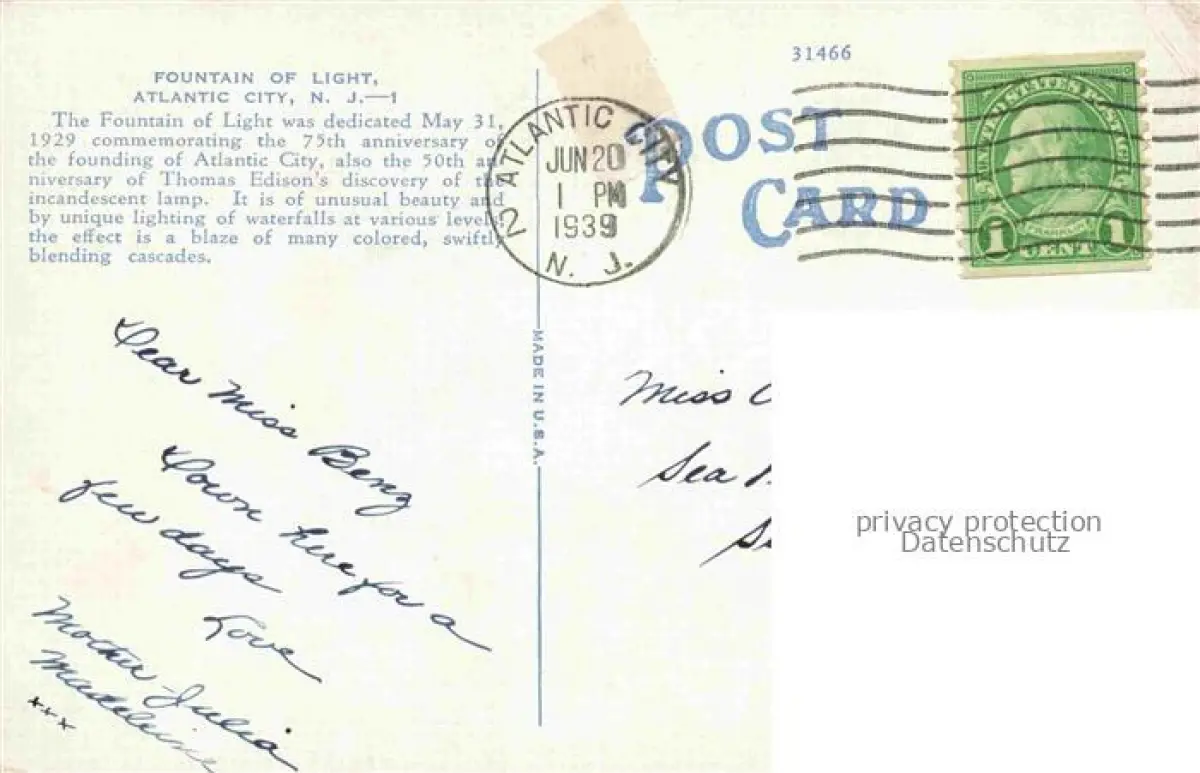 FOUNTAIN OF LIGHT,
ATLANTIC CITY, N. J.—1
The Fountain of Light was dedicated May 31,
1929 commemorating the 75th anniversary of
the founding of Atlantic City, also the 50th an-
niversary of Thomas Edison's discovery of the
incandescent lamp. It is of unusual beauty and
by unique lighting of waterfalls at various levels,
the effect is a blaze of many colored, swiftly
blending cascades.
31466
POST
CARD
ATLANTIC CITY
2
JUN 20
1 PM
1939
N. J.
1 CENT 1
MADE IN U.S.A.
Dear Miss Benz
Down here for a
few days
Love
Mother Julia
Madeleine
xxx
Miss
Sea
privacy protection
Datenschutz